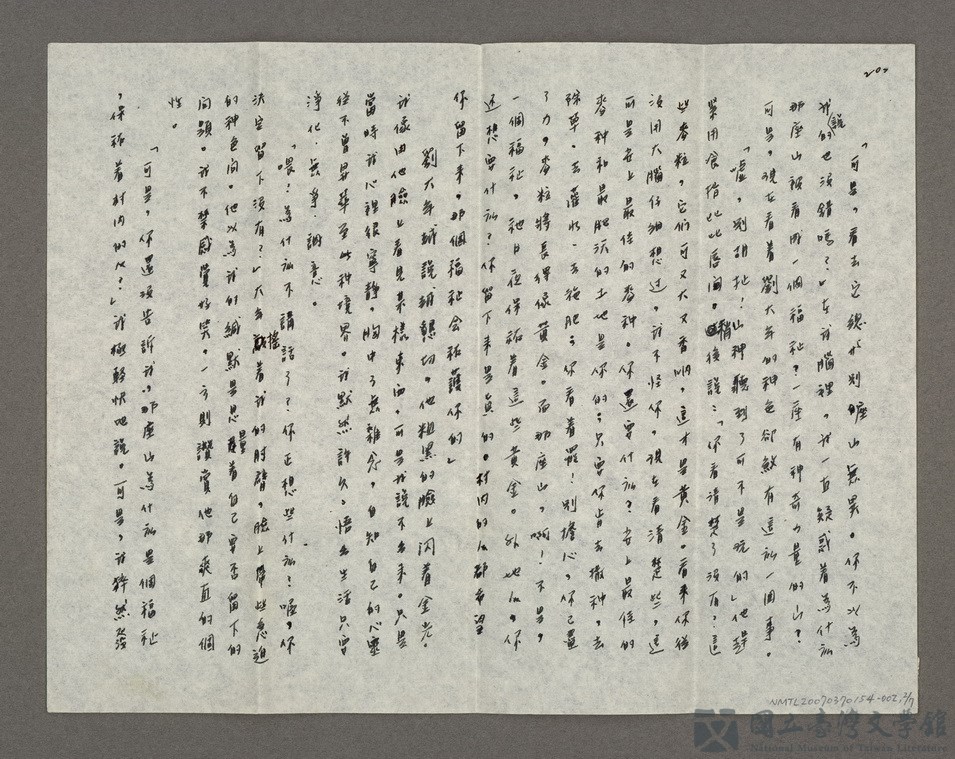 202
「可是，看去它總與別座山無異。你不以為
我說的也沒錯嗎？」在我腦裡，我一直疑惑着為什麼
那座山被看成一個福祉？一座有神奇力量的山？
可是，現在看着劉大年的神色卻敢有這麼一回事。
「噓，別胡扯！山神聽到了可不是玩的」他趕
緊用食指比比唇間。稍後說：「你看清楚了沒有？這
些麥粒，它們可又大又香吶，這才是黃金。看來你從
沒用大腦仔細想過，我不怪你。現在看清楚些，這
可是世上最佳的麥種。你還要什麼？世上最佳的
麥種和最肥沃的土地是你的；只要你肯去撒種，去
除草，去灌水，去施肥；你看着罷！別擔心，你已盡
了力，麥粒將長得像黃金。而那座山，啊！不是，
一個福祉，祂日夜保祐着這些黃金。外地人，你
還想要什麼？你留下來是真的。村內的人都希望
你留下來，那個福祉會祐護你的」
劉大年越說越懇切，他粗黑的臉上閃着金光。
我像由他臉上看見某樣東西，可是我說不出來。只是
當時我心裡很寧靜，胸中了無雜念，自知自己的心靈
從不曾昇華至此種境界。我默然許久，悟出生活只要
淨化．無爭．調意。
「喂！為什麼不講話了？你正想些什麼？喔，你
決定留下沒有？」大年搖着我的肘臂，臉上帶些急迫
的神色問。他以為我的緘默是思量着自己要否留下的
問題。我不禁感覺好笑，一方則讚賞他那爽直的個
性。
「可是，你還沒告訴我，那座山為什麼是個福祉
，保祐着村內的人？」我極輕快地說。可是，我猝然發
NMTL20070370154-002, 2/7
國立臺灣文學館
National Museum of Taiwan Literature